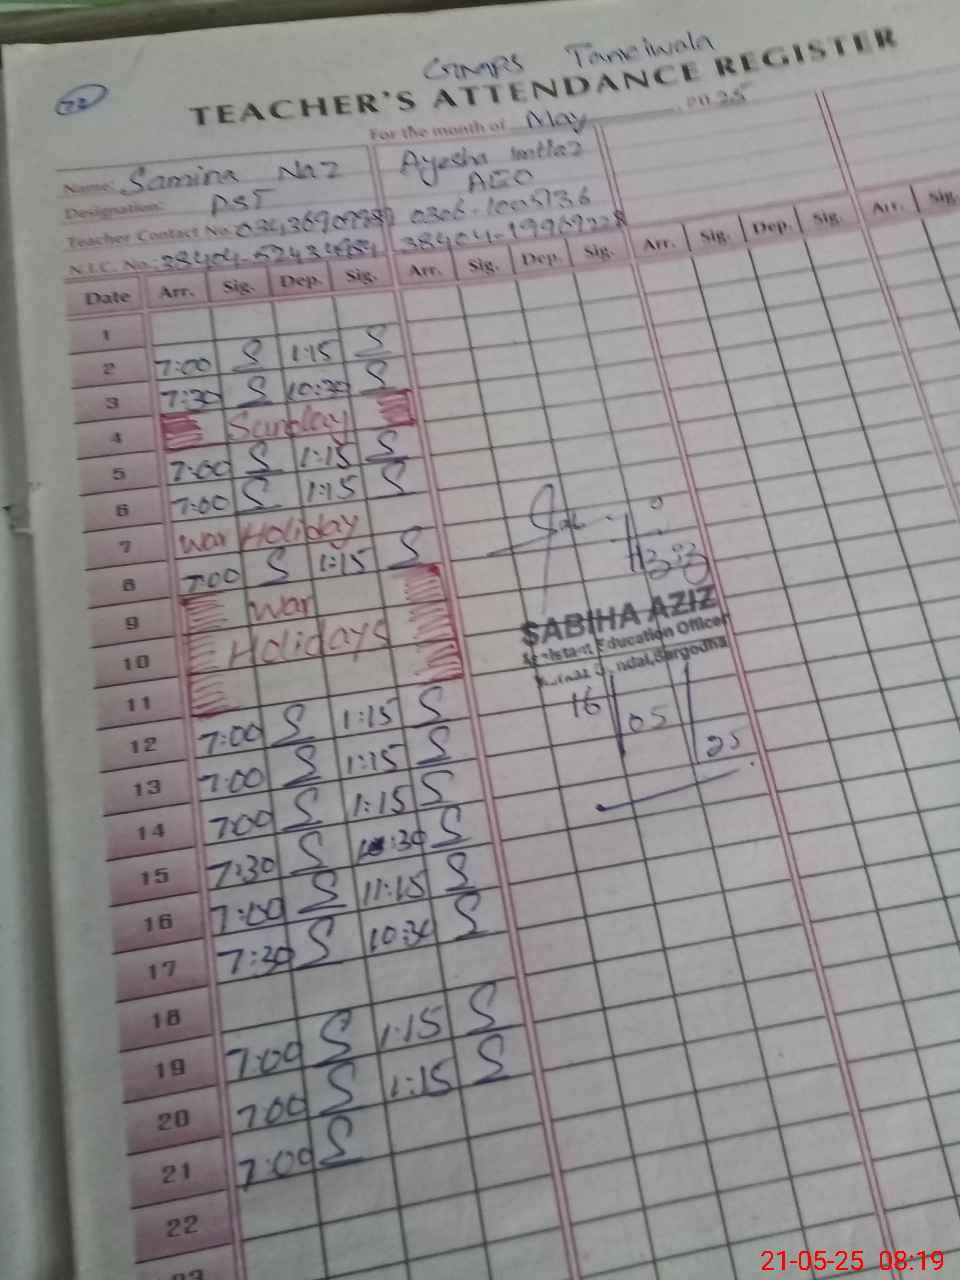 72
GMPS Tanciwala
TEACHER'S ATTENDANCE REGISTER
For the month of May 2025
Name: Samina Naz Ayesha Imtiaz
Designation: PST AEO
Teacher Contact No.
N.I.C. No.
Date Arr. Sig. Dep. Sig. Arr. Sig. Dep. Sig. Arr. Sig. Dep. Sig. Arr. Sig.
1
2 7:00 S 1:15 S
3 7:30 S 10:30 S
4 Sunday
5 7:00 S 1:15 S
6 7:00 S 1:15 S
7 War Holiday
8 7:00 S 1:15 S
9 War
10 Holidays
11
12 7:00 S 1:15 S
13 7:00 S 1:15 S
14 7:00 S 1:15 S
15 7:30 S :30 S
16 7:00 S 11:15 S
17 7:30 S 10:30 S
18
19 7:00 S 1:15 S
20 7:00 S 1:15 S
21 7:00 S
22
23
SABIHA AZIZ
Assistant Education Officer
Sargodha
16/05/25
21-05-25 08:19